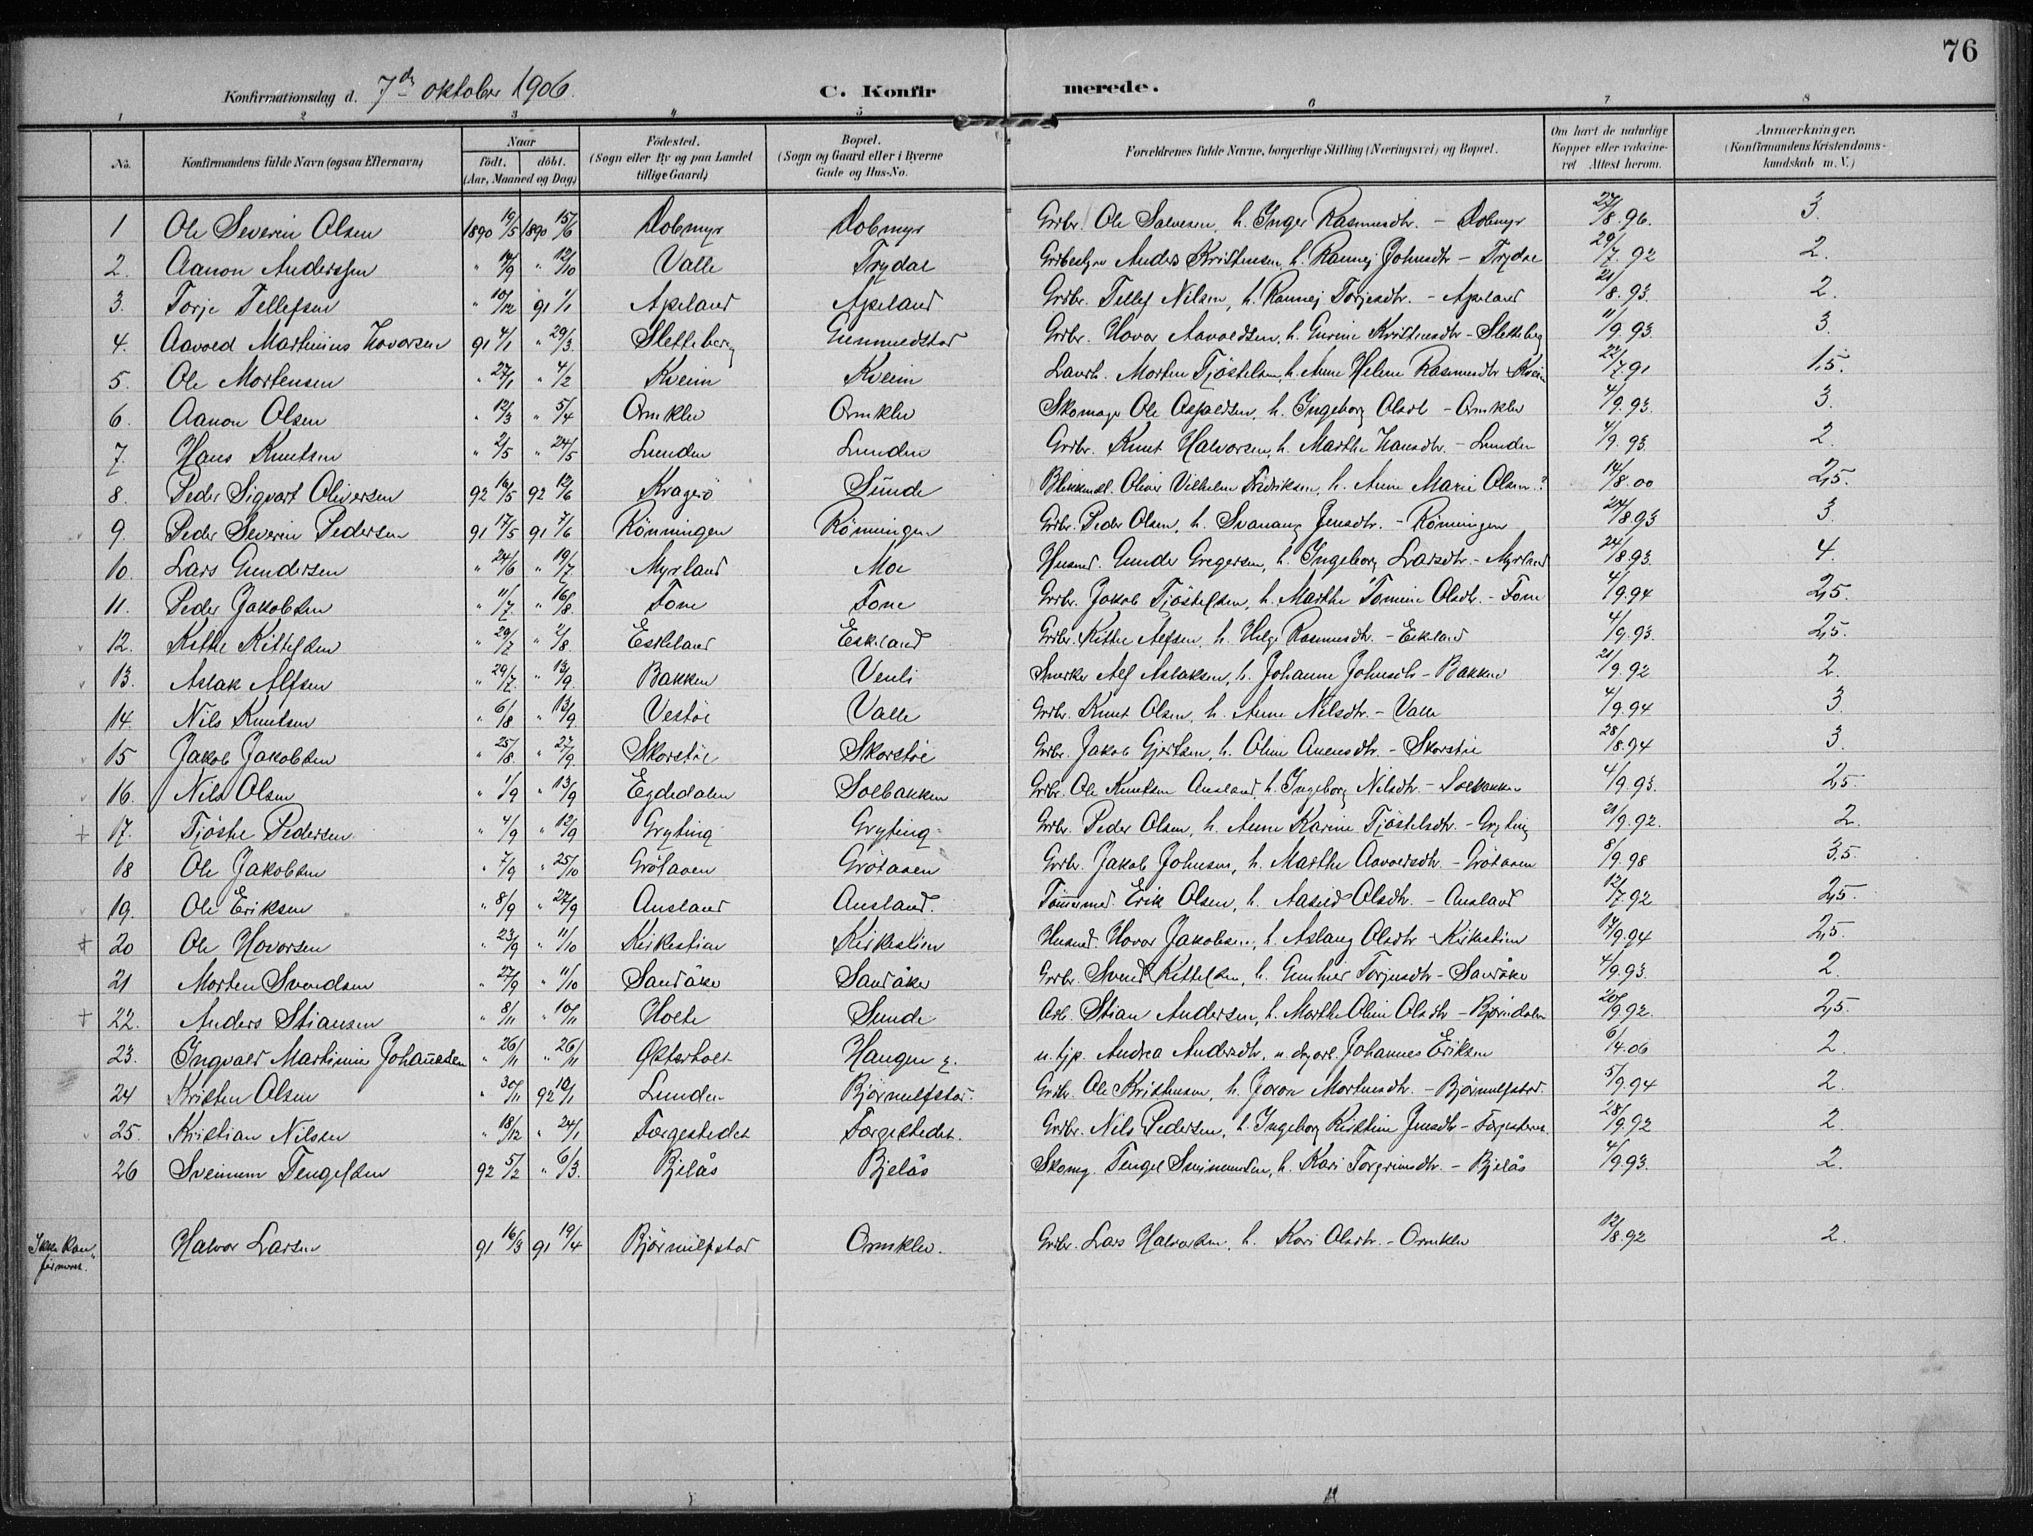 76
Konfirmationsdag d. 7de oktober 1906. C. Konfirmerede.
1 2 3 4 5 6 7 8
No. Konfirmandens fulde Navn (ogsaa Efternavn) Naar født. døbt. (Aar, Maaned og Dag) Fødested. (Sogn eller By og paa Landet tillige Gaard) Bopæl. (Sogn og Gaard eller i Byerne Gade og Hus-No. Forældrenes fulde Navne, borgerlige Stilling (Næringsvei) og Bopæl. Om havt de naturlige Kopper eller vakcineret Attest herom. Anmærkninger. (Konfirmandens Kristendomskundskab m. V.)
1 Ole Severin Olsen 1890 19/5 1890 15/6 Dobmyr Dobmyr Grdbr. Ole Salvesen, h. Inger Rasmusdtr. - Dobmyr 27/8.96. 3.
2. Aanon Anderssen " 14/9 " 12/10 Valle Trydal Anders Kristensen, h. Rannei Johnsdtr - Trydal 29/7.92 2.
3. Torje Tellefsen " 10/12 91 1/1 Apeland Apeland Grdbr. Tellef Nilsen, h. Rannej Torjesdtr. - Apeland 21/8.93. 2.
4. Aavold Martinius Hovorsen 91 4/1 " 29/3. Sletteberg Gunmundstad Grdbr. Hovor Aavoldsen, h. Gurine Kristensdtr - Sletteberg 11/9.93. 3.
5. Ole Mortensen " 27/1 " 4/2 Kveim Kveim Morten Tjøstelsen, h. Anne Helene Rasmusdtr Kveim 22/7 91 1,5.
6. Aanon Olsen " 12/3 " 5/4 Ormklev Ormklev Skomager Ole h. Ingeborg Olsdt - Ormklev 4/9.93. 3.
7. Hans Knutsen " 2/5 " 24/5 Lunden Lunden Grdbr. Knut Halvorsen, h. Marthe Hansdtr. - Lunden 4/9.93. 2.
8. Peder Sigvart Oliversen 92 16/5 92 12/6 Kragerø Sunde Blikkensl. Oliver Vilhelm Fredriksen, h. Anne Marie Olsen ? 14/8.00 2,5.
9. Peder Severin Pedersen 91 17/5 91 7/6 Rønningen Rønningen Grdbr. Peder Olsen, h. Svanaug Jensdtr. - Rønningen 24/8.93 3.
10. Lars Gundersen " 24/6 " 19/7 Myrland Moe Husmd. Gunder Gregersen, h. Ingeborg Larsdtr. - Myrland 24/8.93. 4.
11. Peder Jakobsen " 11/7. " 16/8. Tone Tone Grdbr. Jakob Tjøstelsen, h. Marthe Tomine Olsdtr. - Tone 4/9.94 2,5.
12. Kittel Kittelsen " 29/7 " 2/8 Eskeland Eskeland Grdbr. Kittel Alfsen, h. Helge Rasmusdtr. - Eskeland 4/9.93. 2,5.
13. Aslak Alfsen " 29/7. " 13/9. Bakken Venli Snerker Alf Aslaksen, h. Johanne Johnsdt - Bakken 21/9.92 2.
14. Nils Knutsen " 6/8 " 13/9. Vestøl Valle Grdbr. Knut Olsen, h. Anne Nilsdtr. - Valle 4/9.94 3
15 Jakob Jakobsen " 25/8. " 27/9 Skorstøl Skorstøl Grdbr. Jakob Gjertsen, h. Oline Auensdtr. - Skorstøl 28/8.94 3.
16. Nils Olsen " 1/9 " 13/9 Egdedalen Solbakken Grdbr. Ole Knutsen Ausland, h. Ingeborg Nilsdtr. - Solbakken 4/9.93. 2,5.
+ 17. Tjøstel Pedersen " 4/9 " 12/9 Gryting Gryting Grdbr. Peder Olsen, h. Anne Karine Tjøstelsdtr. - Gryting 21/9.92. 2.
18 Ole Jakobsen " 7/9 " 25/10 Grøtaaen Grøtaaen Grdbr. Jakob Johnsen, h. Marthe Aavoldsdtr. - Grøtaaen 8/9.98 3.5.
19. Ole Eriksen " 8/9 " 27/9 Ausland Ausland. Tømmermd. Erik Olsen, h. Aasild Olsdtr. - Ausland 12/7.92 2,5.
+ 20 Ole Hovorsen " 23/9 " 11/10 Kirkestien Kirkestien Husmd. Hovor Jakobsen, h. Aslaug Olsdtr - Kirkestien 17/9.94 2,5.
21 Morten Svendsen " 27/9 " 11/10 Sandåker Sandåker Grdbr. Svend Kittelsen, h. Gunhild Torjusdtr - Sandåker 4/9.93. 2.
+ 22. Anders Stiansen " 8/11 " 10/11 Holte Sunde Arb. Stian Andersen, h. Marthe Oline Olsdtr - Bjørndalen 20/9.92. 2,5.
23. Ingvald Martinius Johannesen " 26/11 " 26/11 Østerholt Haugen u. tjp. Andrea Andersdtr, u. Johannes Eriksen 6/4.06 2.
24 Kristen Olsen " 30/11 92 10/1 Lunden Bjørnulfstad. Grdbr. Ole Kristensen, h. Joron Mortensdtr. - Bjørnulfstad. 5/9.94 2.
25. Kristian Nilsen " 18/12 " 24/1 Torgestedet Torgestedet. Grdbr. Nils Pedersen, h. Ingeborg Kirstine Jensdtr - 28/9.92 2.
26 Sveinum Tengelsen 92 5/2 " 6/3. Bjelås Bjelås Skomg. Tengel Sveinumsen, h. Kari Torgrimsdtr. - Bjelås 4/9.93. 2.
Ikke konfirmeret. Halvor Larsen 91 16/3 91 19/4 Bjørnulfstad Ormklev. Grdbr. Lars Halvorsen, h. Kari Olsdtr. - Ormklev 12/8.92 2.